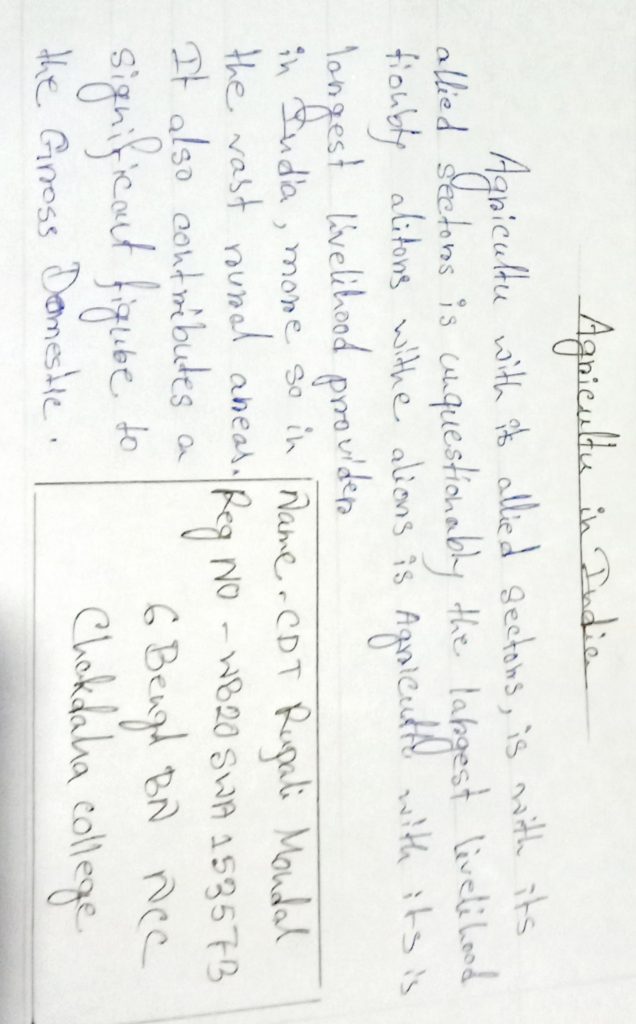 Agricultu in India
Agricultu with it allied sectors, is with its
allied sectors is unquestionably the largest livelihood
tionbty alitons withe alions is Agricultu with its is
largest livelihood provider
in India, more so in
the vast rural areas.
It also contributes a
significant figube to
the Gross Domestic.
Name - CDT Rupali Mondal
Reg NO - WB20SWA153573
6 Bengal BN NCC
Chakdaha college